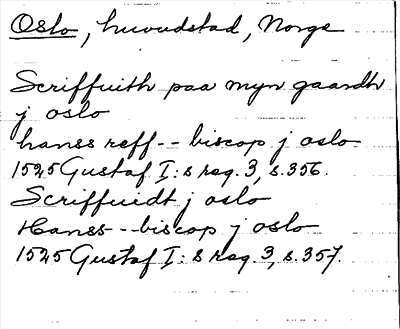 Oslo, huvudstad, Norge
Scriffuith paa myn gaardh
j oslo
hanss reff-- biscop j oslo
1525 Gustaf I:s reg. 3, s. 356.
Scriffuidt j oslo
Hanss--biscop j oslo
1525 Gustaf I:s reg. 3, s. 357.